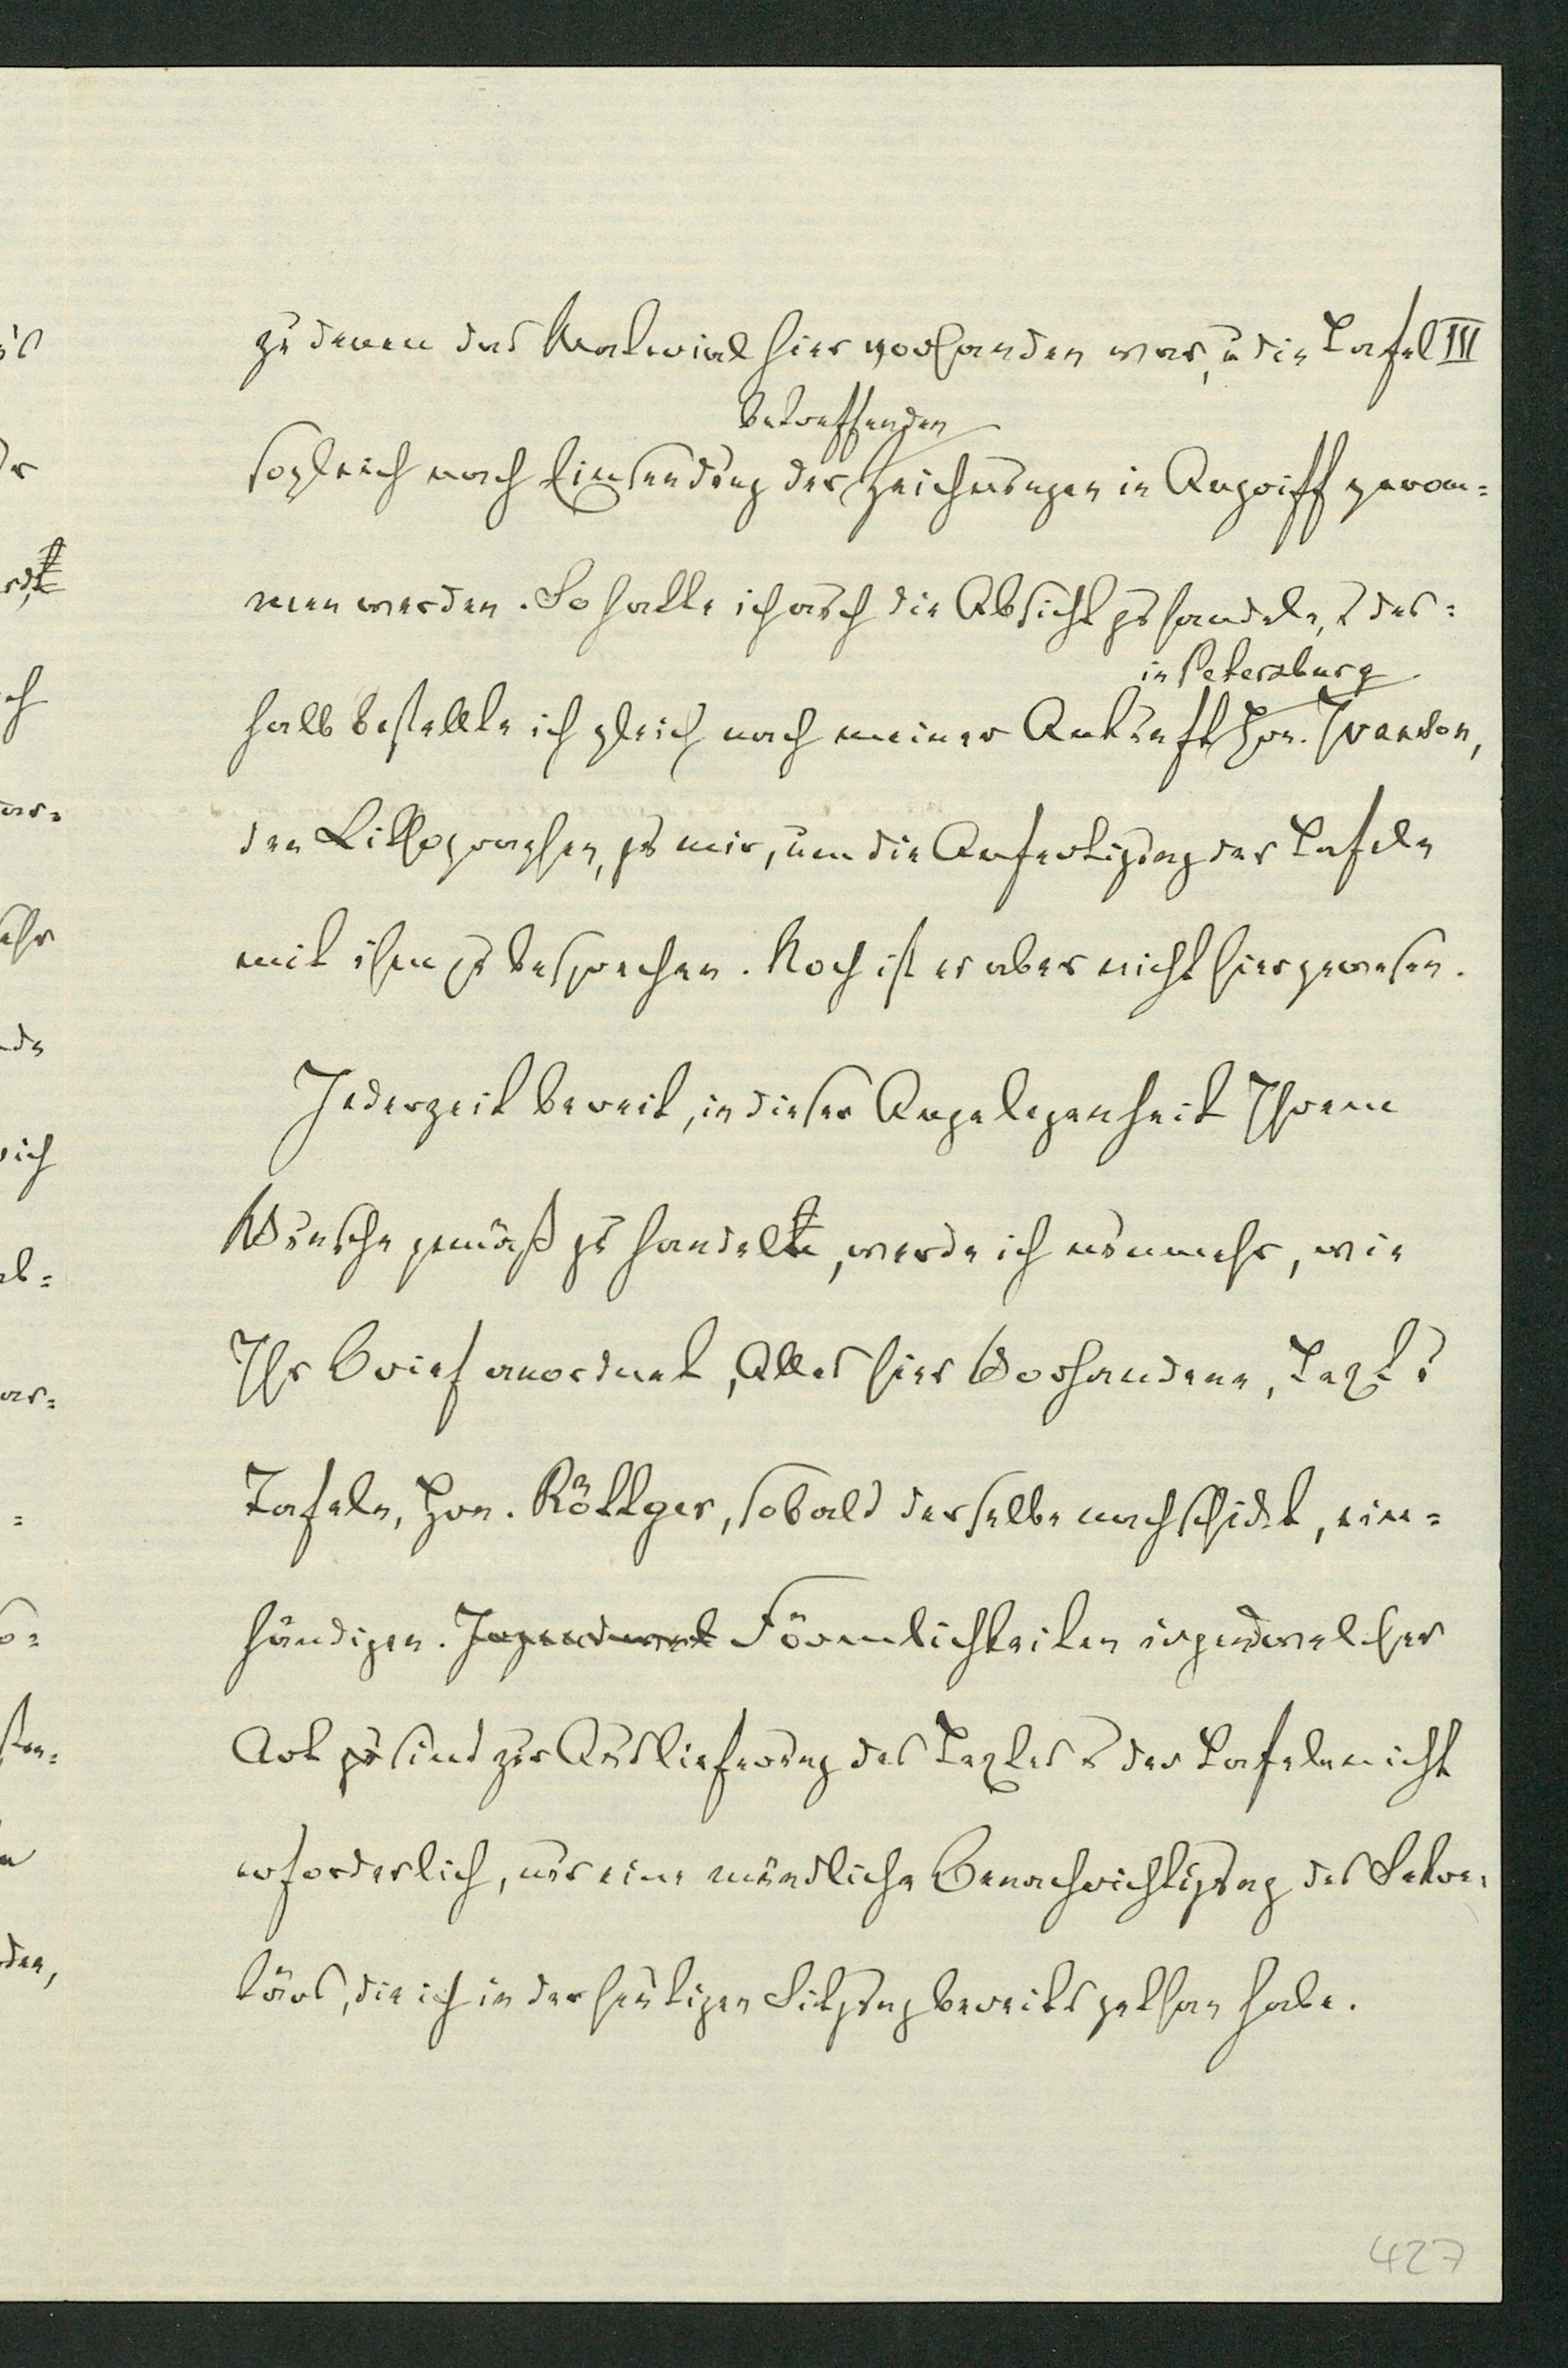 zu denen das Material hier vorhanden war, u die Tafel III
betreffenden
sogleich nach Einsendung der Zeichnungen in Angriff genom=
men werden. So hatte ich auch die Absicht zu handeln, u des=
in Petersburg
halb bestellte ich gleich nach meiner Ankunft Hrn. Ivanson,
den Lithographen, zu mir, um die Anfertigung der Tafeln
mit ihm zu besprechen. Noch ist er aber nicht hier gewesen.
Jederzeit bereit, in dieser Angelegenheit Ihrem
Wunsche gemäß zu handeln, werde ich nunmehr, wie
Ihr Brief anordnet, Alles hier Vorhandene, Text u
Tafeln, Hrn. Röttger, sobald derselbe nachschickt, ein=
händigen. Förmlichkeiten irgendwelcher
Art zu sind zur Auslieferung des Textes u der Tafeln nicht
erforderlich, nur eine mündliche Benachrichtigung des Sekre=
tärs, die ich in der heutigen Sitzung bereits gethan habe.
427